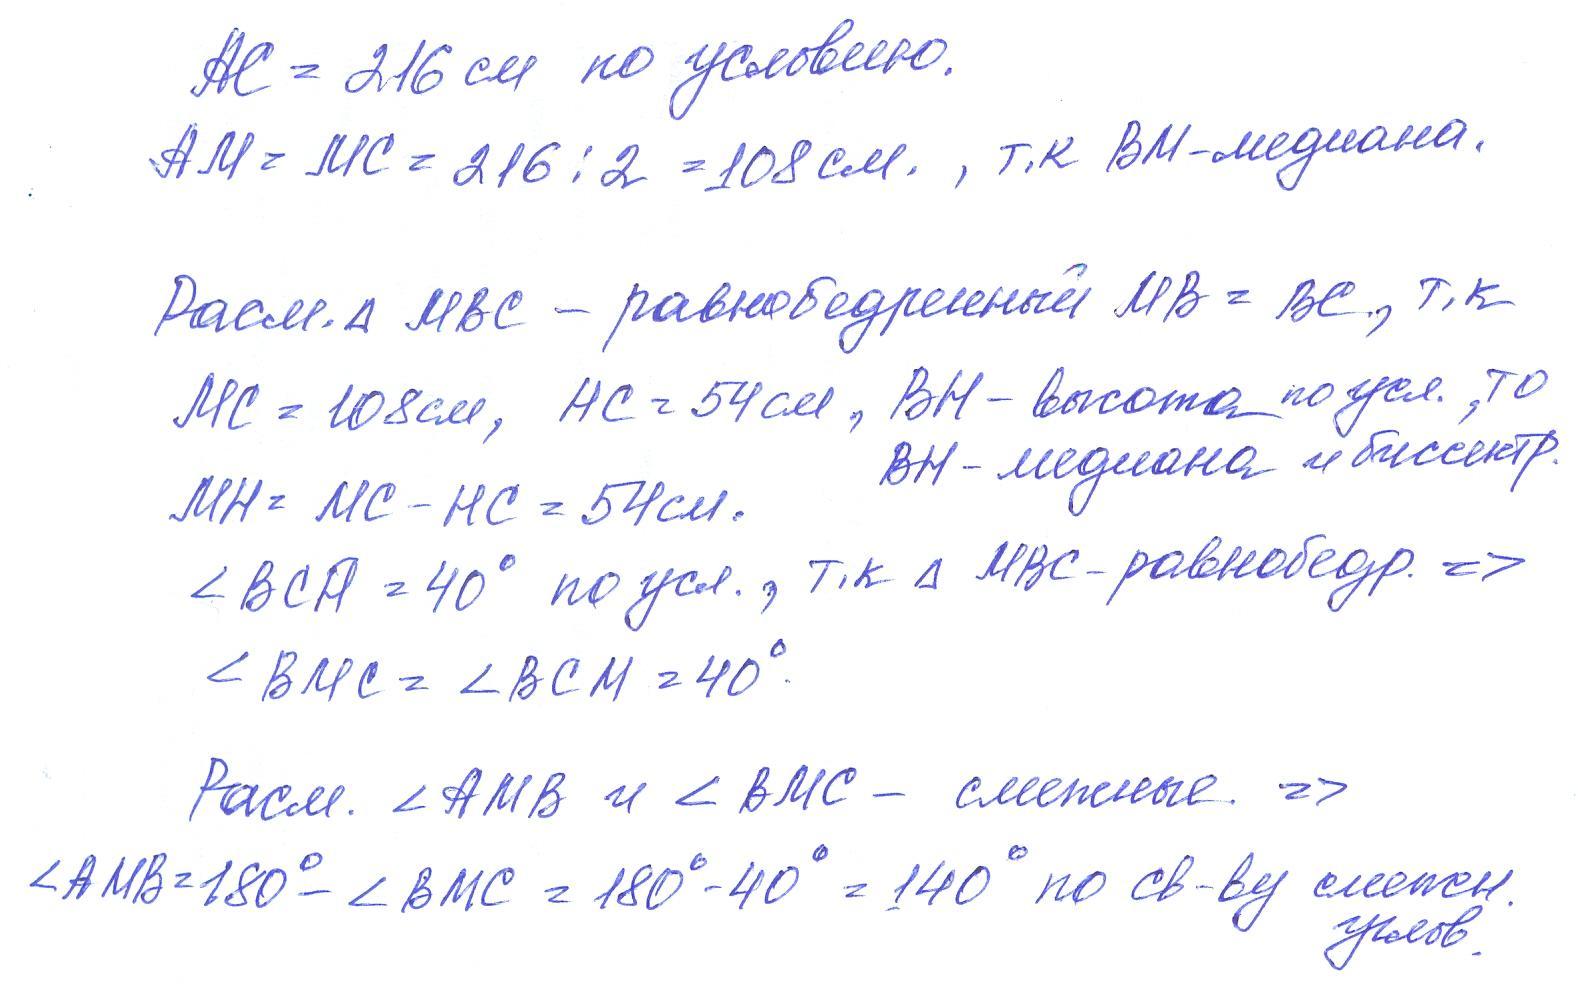 AC = 216 см по условию.
AM = MC = 216 : 2 = 108 см. , т.к BM - медиана.
Расм. ∆ MBC - равнобедренный MB = BC., т.к
MC = 108 см, HC = 54 см, BH - высота по усл. , то
BH - медиана и биссектр.
MH = MC - HC = 54 см.
∠BCA = 40° по усл., т.к ∆ MBC - равнобедр. =>
∠BMC = ∠BCM = 40°.
Расм. ∠AMB и ∠BMC - смежные. =>
∠AMB = 180° - ∠BMC = 180° - 40° = 140° по св-ву смежн.
углов.